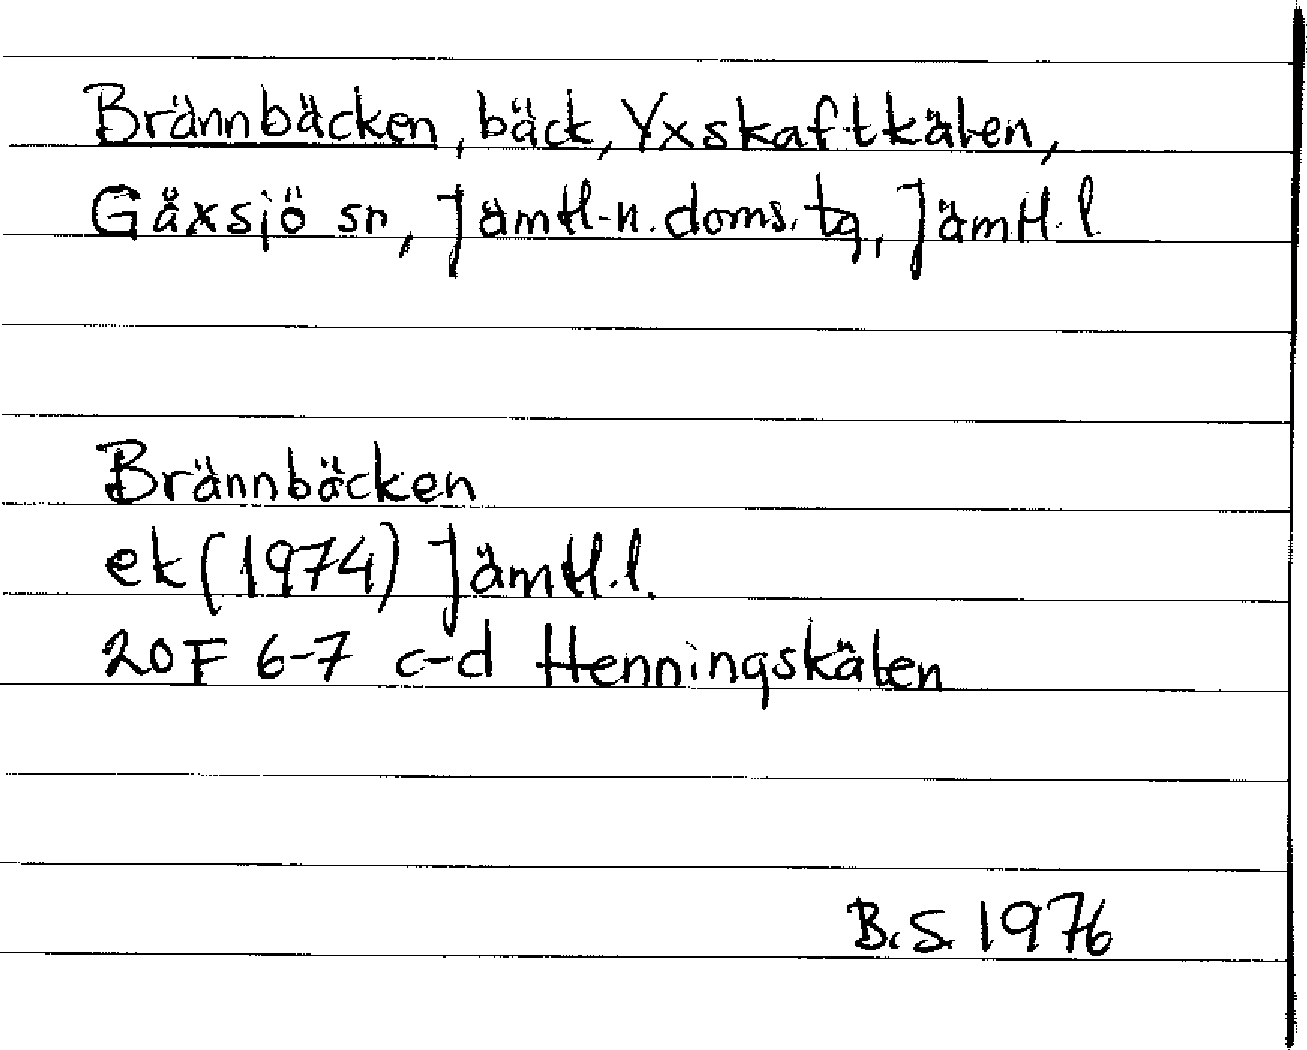 Brännbäcken, bäck, Yxskaftkälen,
Gåxsjö sn, Jämtl-n. doms. tg, Jämtl. l.
Brännbäcken
ek (1974) Jämtl. l.
20F 6-7 c-d Henningskälen
B.S. 1976